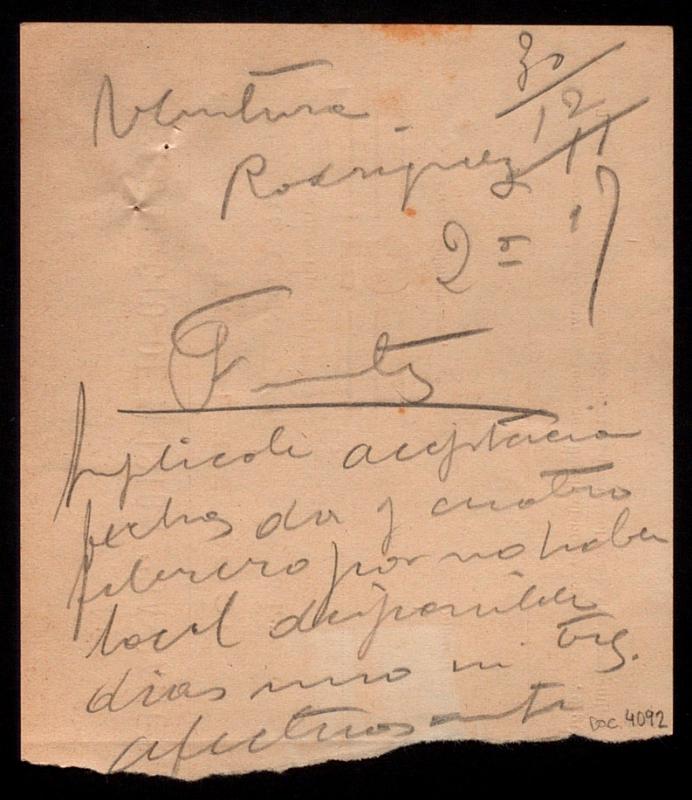 Ventura
30/12/11
Rodriguez
2º 17
Fuentes
Suplicole aceptacion
fechas dos y cuatro
febrero por no haber
local disponible
dias uno ni tres.
Afectuosamente
DOC. 4092